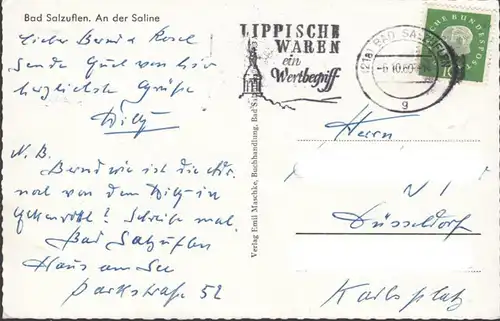 Bad Salzuflen. An der Saline
Lieber Bernd u. Rosel
Sende Euch von hier
herzlichste Grüße
Willy
N. B.
Bernd wie ist die Adr.
noch von dem Willy in
Schreibe mal.
Bad Salzuflen
Haus am See
Parkstraße 52
Verlag Emil Maschke, Buchhandlung, Bad
LIPPISCHE
WAREN
ein
Wertbegriff
(21a) BAD SALZUFLEN
-6.10.60
g
DEUTSCHE BUNDESPOST
10
Herrn
N 1
Düsseldorf
Karlsplatz